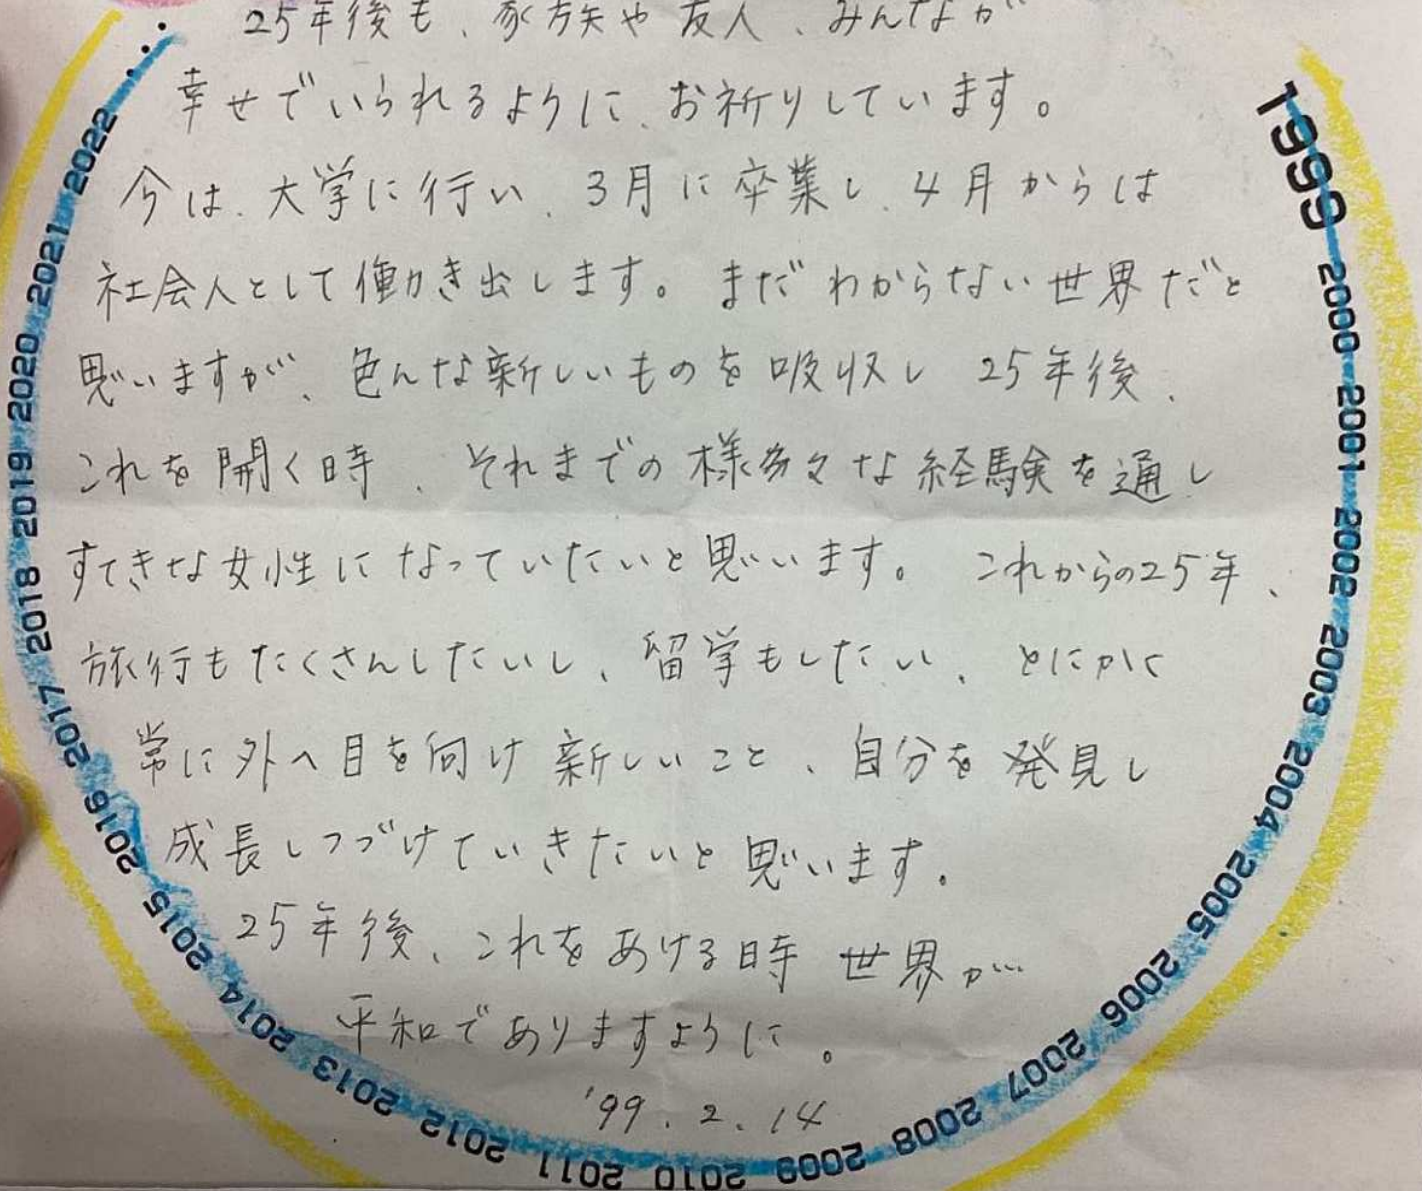 25年後も、家族や友人、みんなが
幸せでいられるように、お祈りしています。
今は、大学に行い、3月に卒業し、4月からは
社会人として働き出します。まだわからない世界だと
思いますが、色んな新しいものを吸収し 25年後、
これを開く時、それまでの様々な経験を通し
すてきな女性になっていたいと思います。 これからの25年、
旅行もたくさんしたいし、留学もしたい、とにかく
常に外へ目を向け 新しいこと、自分を発見し
成長しつづけていきたいと思います。
25年後、これをあける時 世界が
平和でありますように。
'99.2.14
1999 2000 2001 2002 2003 2004 2005 2006 2007 2008 2009 2010 2011 2012 2013 2014 2015 2016 2017 2018 2019 2020 2021 2022...